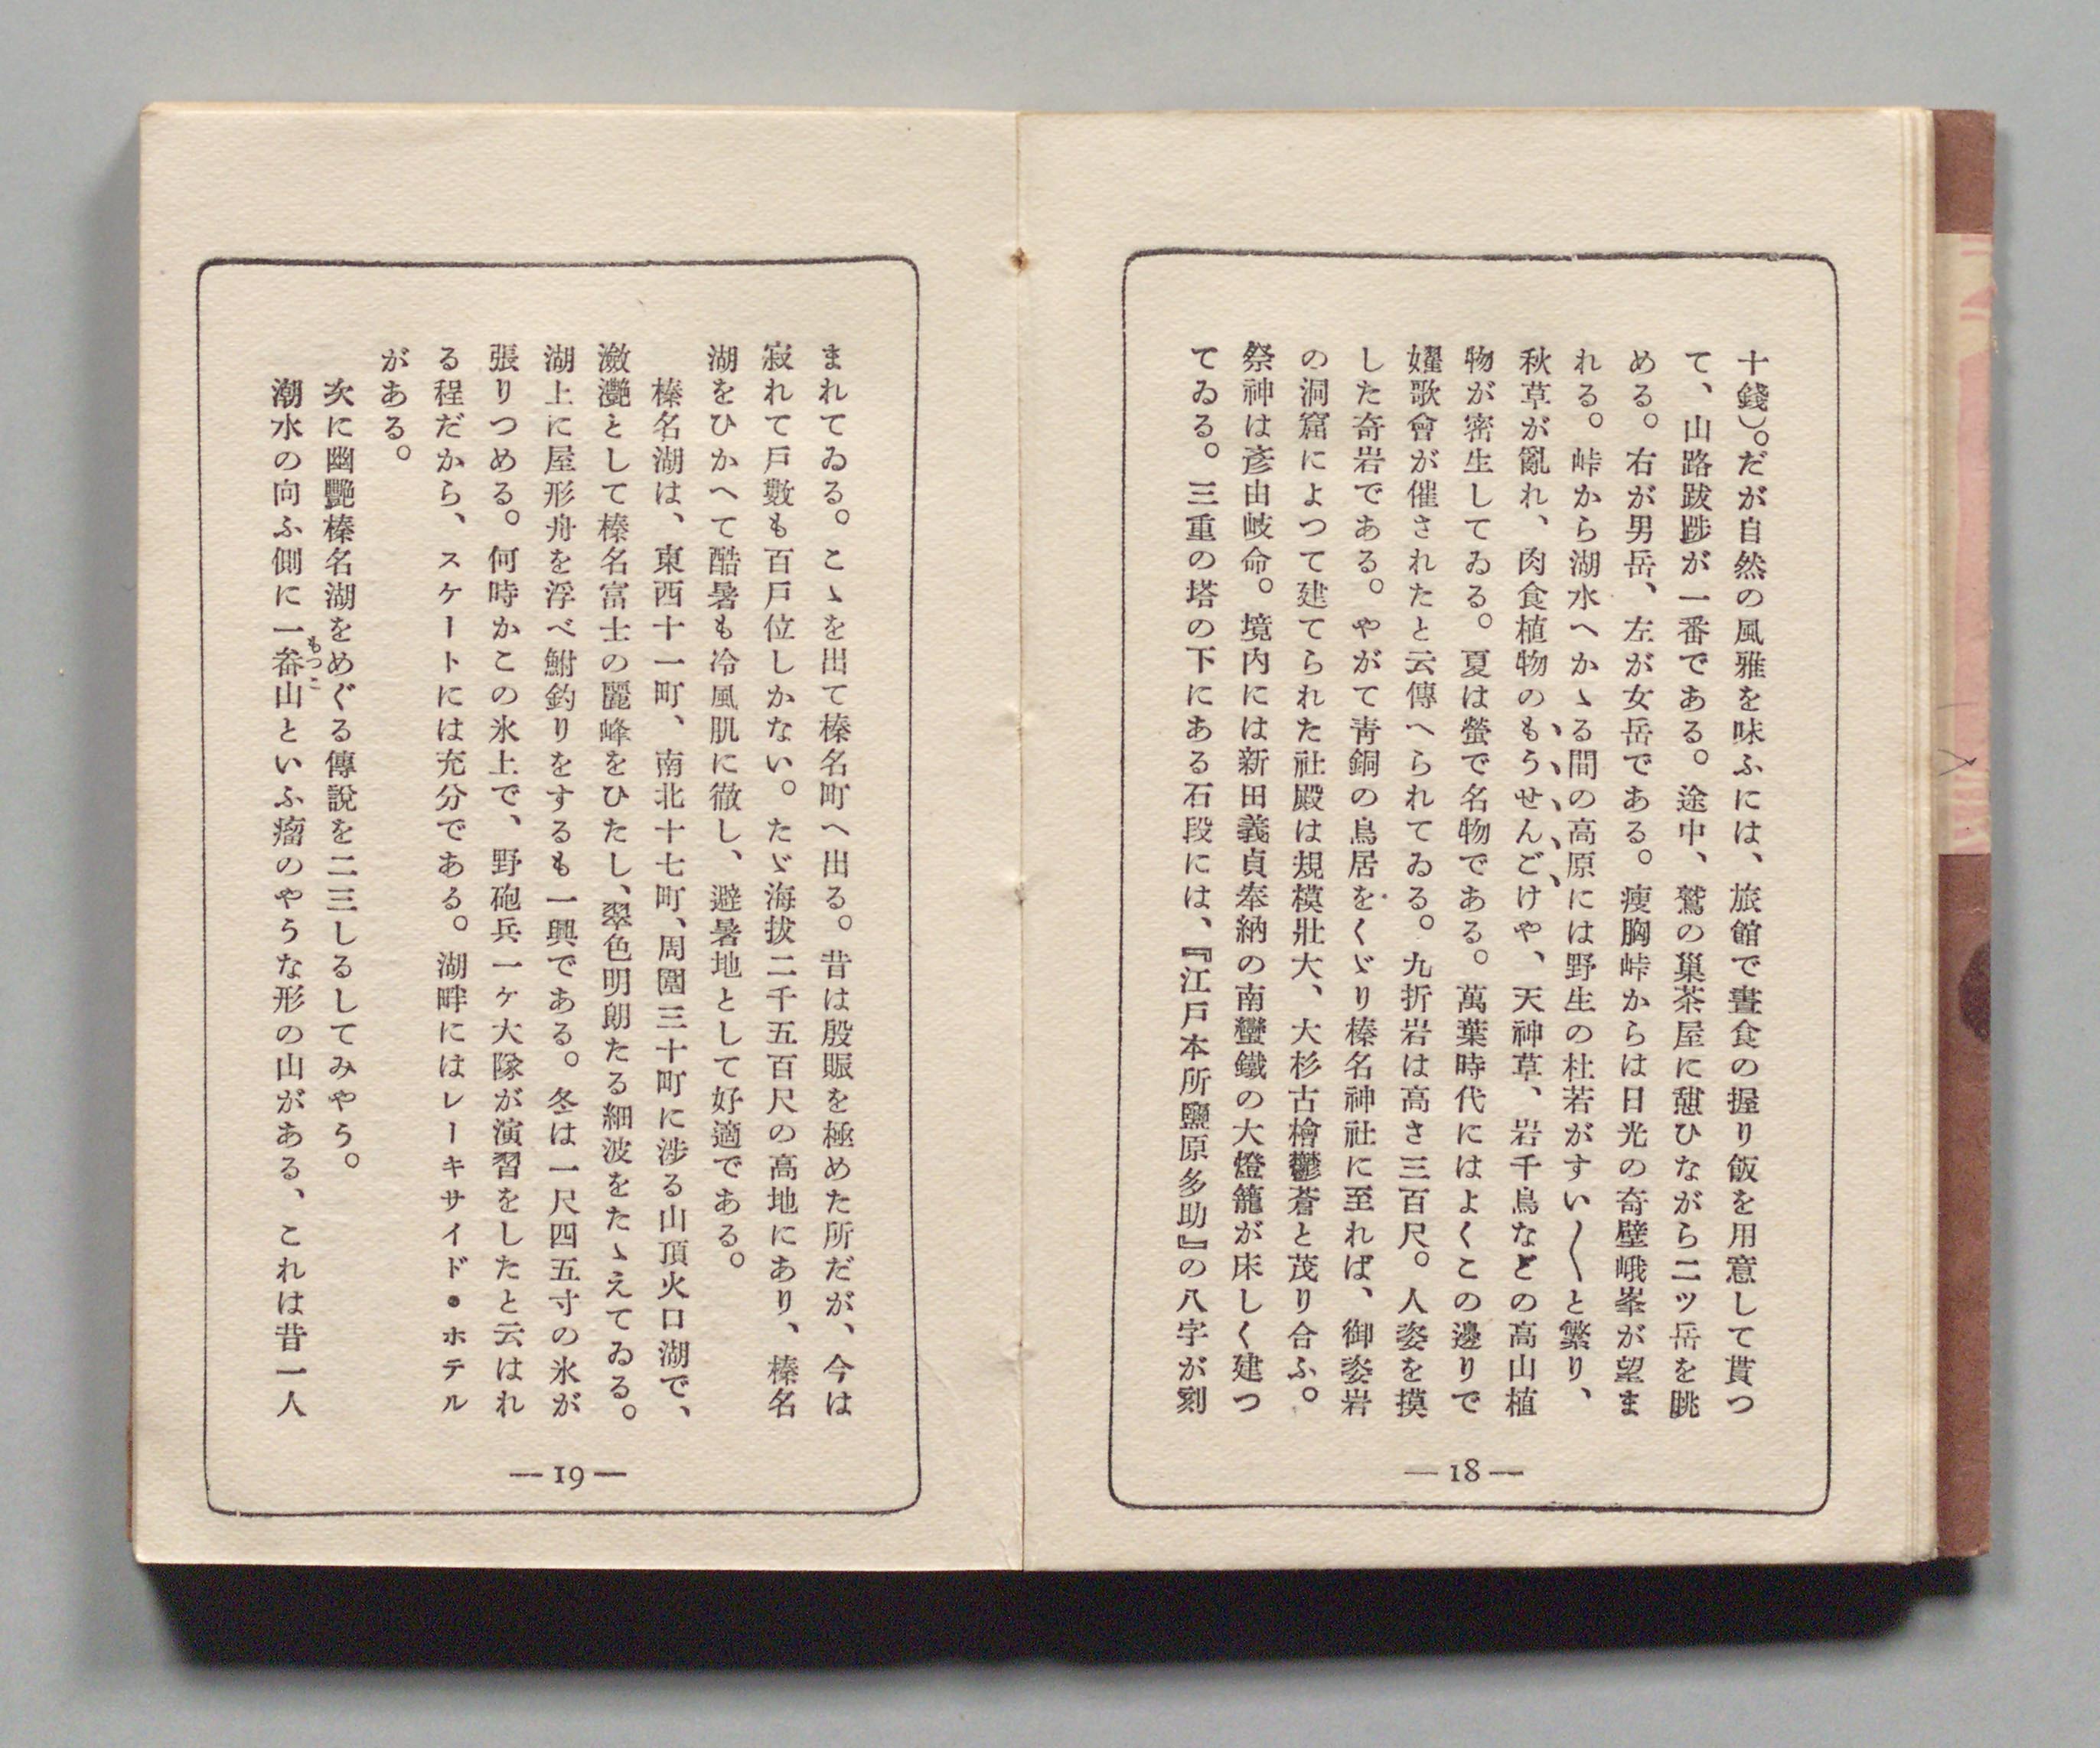 十錢）。だが自然の風雅を味ふには、旅館で晝食の握り飯を用意して貰つ
て、山路跋渉が一番である。途中、鷲の巢茶屋に憩ひながら二ッ岳を眺
める。右が男岳、左が女岳である。瘦胸峠からは日光の奇壁峨峯が望ま
れる。峠から湖水へかゝる間の高原には野生の杜若がすい〱と繁り、
秋草が亂れ、肉食植物のもうせんごけや、天神草、岩千鳥などの高山植
物が密生してゐる。夏は螢で名物である。萬葉時代にはよくこの邊りで
嬥歌會が催されたと云傳へられてゐる。九折岩は高さ三百尺。人姿を摸
した奇岩である。やがて靑銅の鳥居をくゞり榛名神社に至れば、御姿岩
の洞窟によつて建てられた社殿は規模壯大、大杉古檜鬱蒼と茂り合ふ。
祭神は彥由岐命。境内には新田義貞奉納の南蠻鐵の大燈籠が床しく建つ
てゐる。三重の塔の下にある石段には、『江戶本所鹽原多助』の八字が刻
—18—
まれてゐる。こゝを出て榛名町へ出る。昔は殷賑を極めた所だが、今は
寂れて戶數も百戶位しかない。たゞ海拔二千五百尺の高地にあり、榛名
湖をひかへて酷暑も冷風肌に徹し、避暑地として好適である。
榛名湖は、東西十一町、南北十七町、周圍三十町に涉る山頂火口湖で、
瀲灔として榛名富士の麗峰をひたし、翠色明朗たる細波をたゝえてゐる。
湖上に屋形舟を浮べ鮒釣りをするも一興である。冬は一尺四五寸の氷が
張りつめる。何時かこの氷上で、野砲兵一ヶ大隊が演習をしたと云はれ
る程だから、スケートには充分である。湖畔にはレーキサイド・ホテル
がある。
次に幽艷榛名湖をめぐる傳說を二三しるしてみやう。
潮水の向ふ側に一畚山といふ瘤のやうな形の山がある、これは昔一人
もつこ
—19—